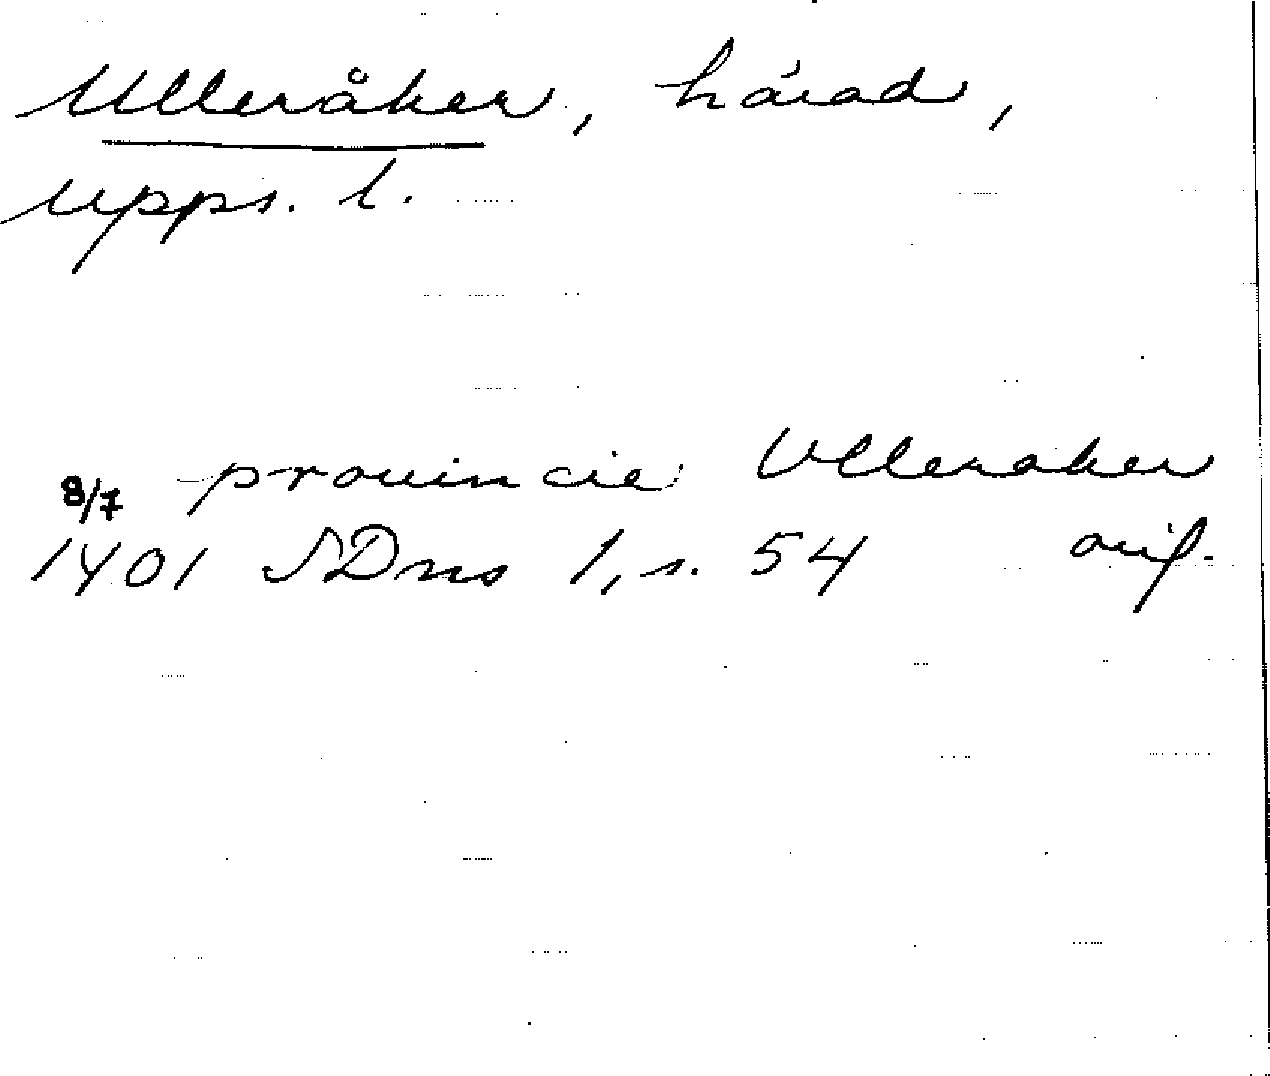 Ulleråker, härad,
Upps. l.
8/7 prouincie Vlleraker
1401 SDns 1, s. 54 orig.